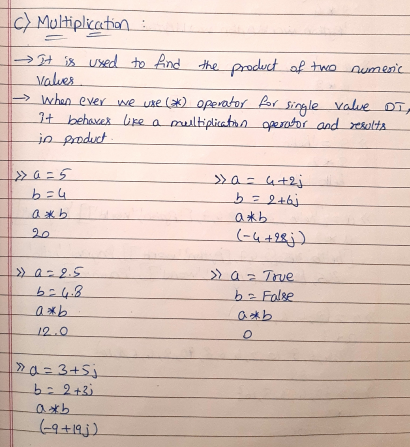 c) Multiplication :
→ It is used to find the product of two numeric
values.
→ When ever we use (*) operator for single value DT,
It behaves like a multiplication operator and results
in product.
>> a = 5
b = 4
a*b
20
>> a = 4+2j
b = 2+6j
a*b
(-4+28j)
>> a = 2.5
b = 4.8
a*b
12.0
>> a = True
b = False
a*b
0
>> a = 3+5j
b = 2+3j
a*b
(-9+19j)